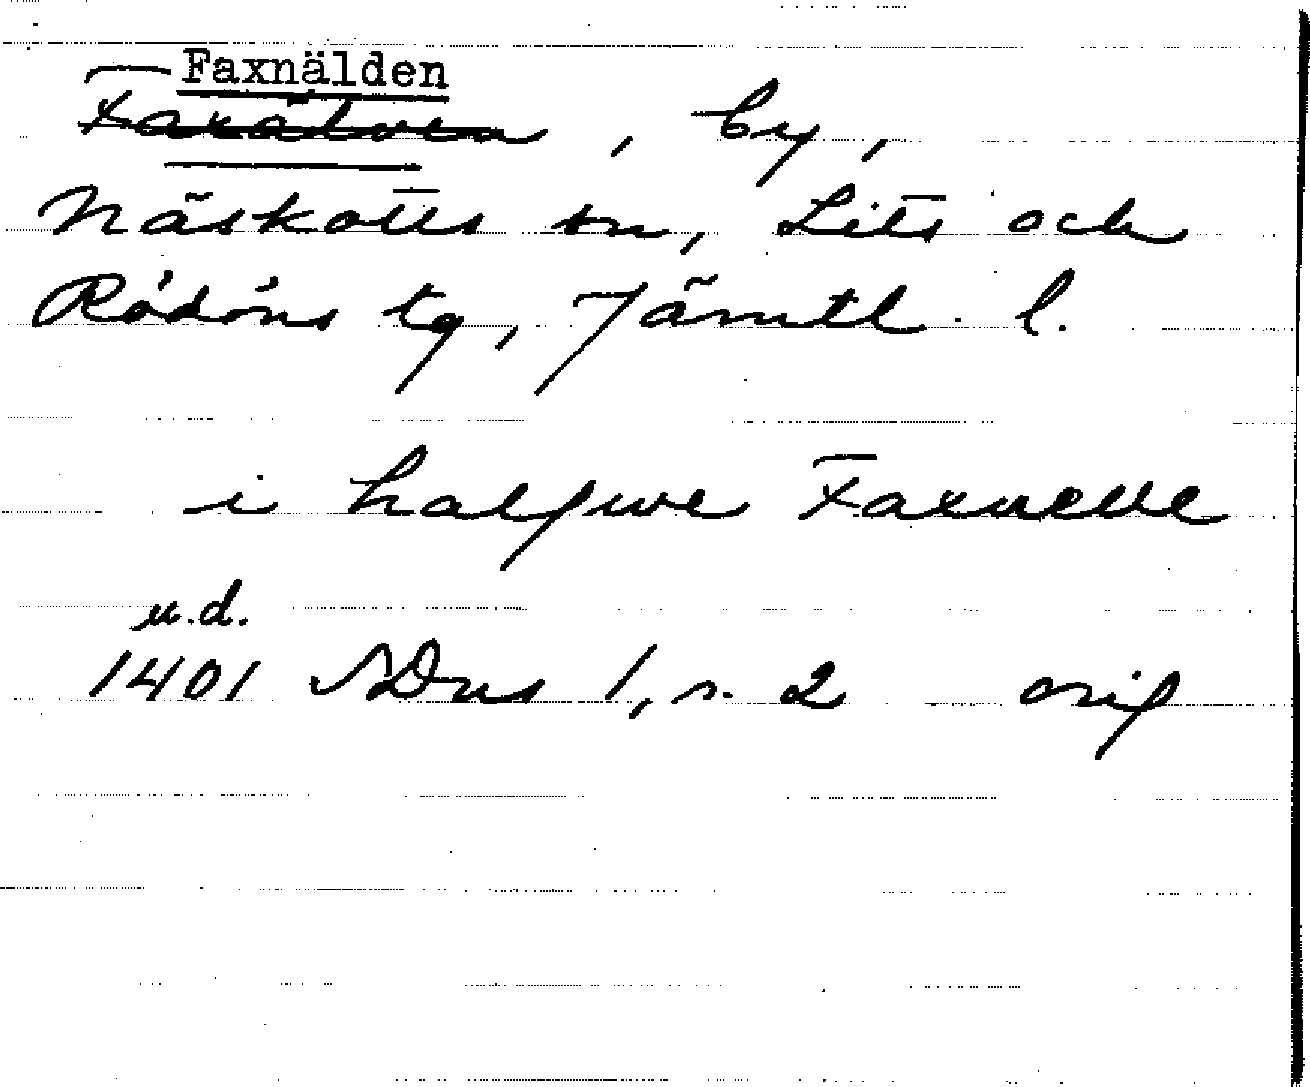 Faxnälden
Faxälven, by,
Näskotts sn, Lits och
Rödöns tg, Jämtl. l.
i halfwe Faxnelle
u.d.
1401 SDns 1, s. 2 orig